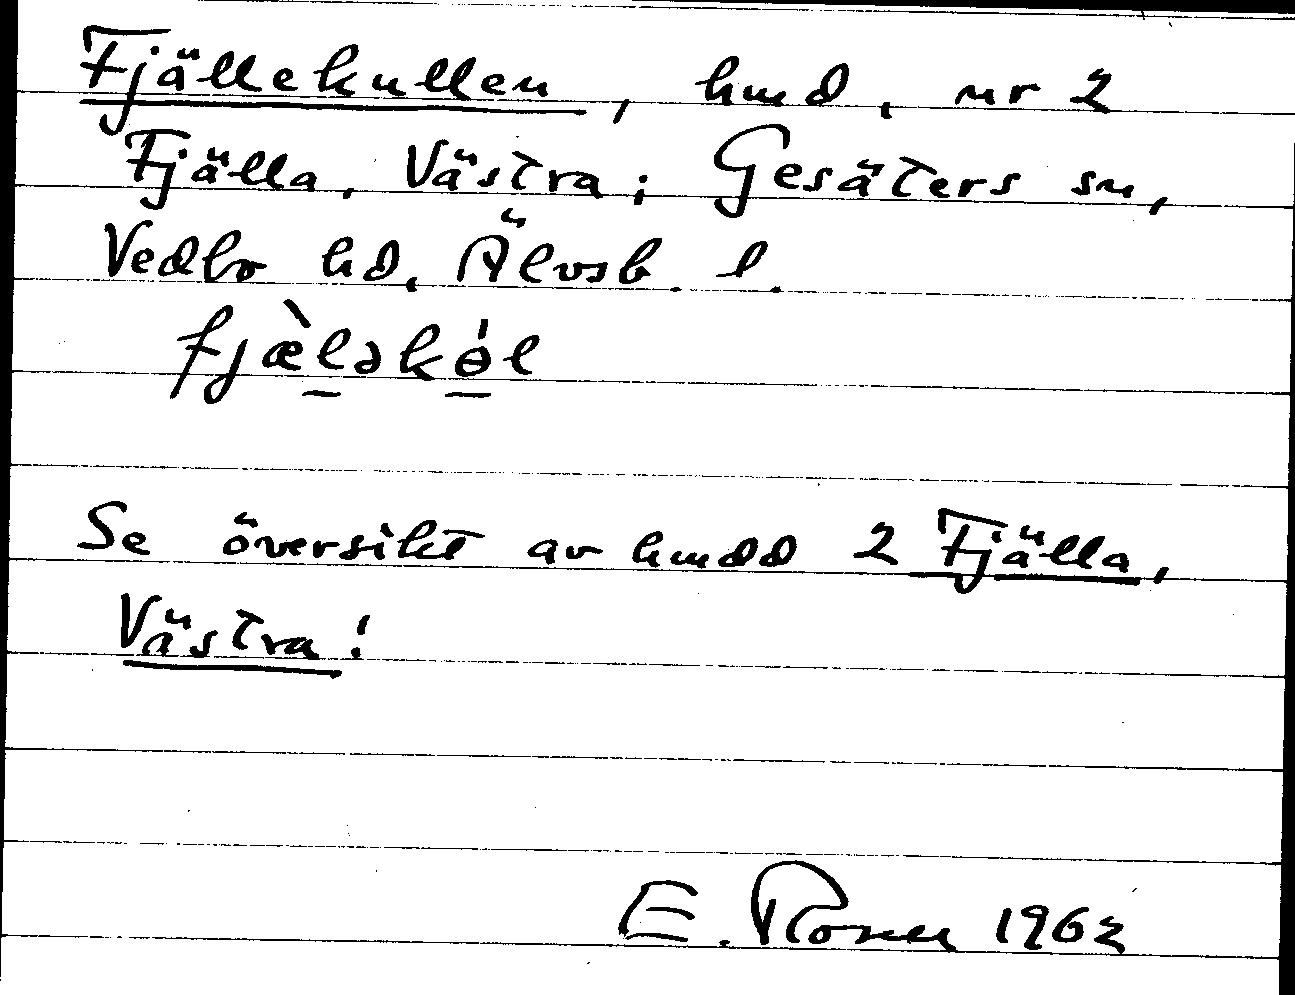 Fjällekullen, hmd, nr 2
Fjälla, Västra; Gesäters sn,
Vedbo hd, Älvsb. l.
fjæ̀l̠əkɵ̠́l
Se översikt av hmdd 2 Fjälla,
Västra!
E. 1962